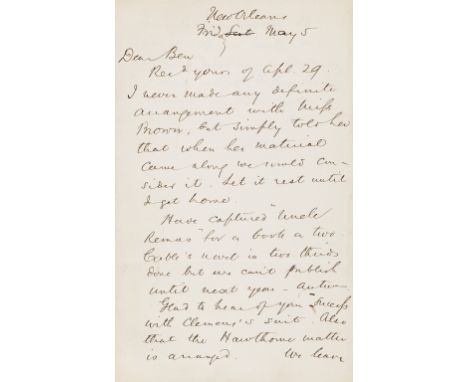 New Orleans
Frid May 5
Dear Ben
Recd yours of Apl. 29.
I never made any definite
arrangement with Miss
Brown, but simply told her
that when her material
came along we would con-
sider it. Let it rest until
I get home.
Have captured "Uncle
Remus" for a book or two.
Cable's novel is two thirds
done but we can't publish
until next year - autumn.
Glad to hear of your success
with Clemens's suit. Also
that the Hawthorne matter
is arranged. We leave